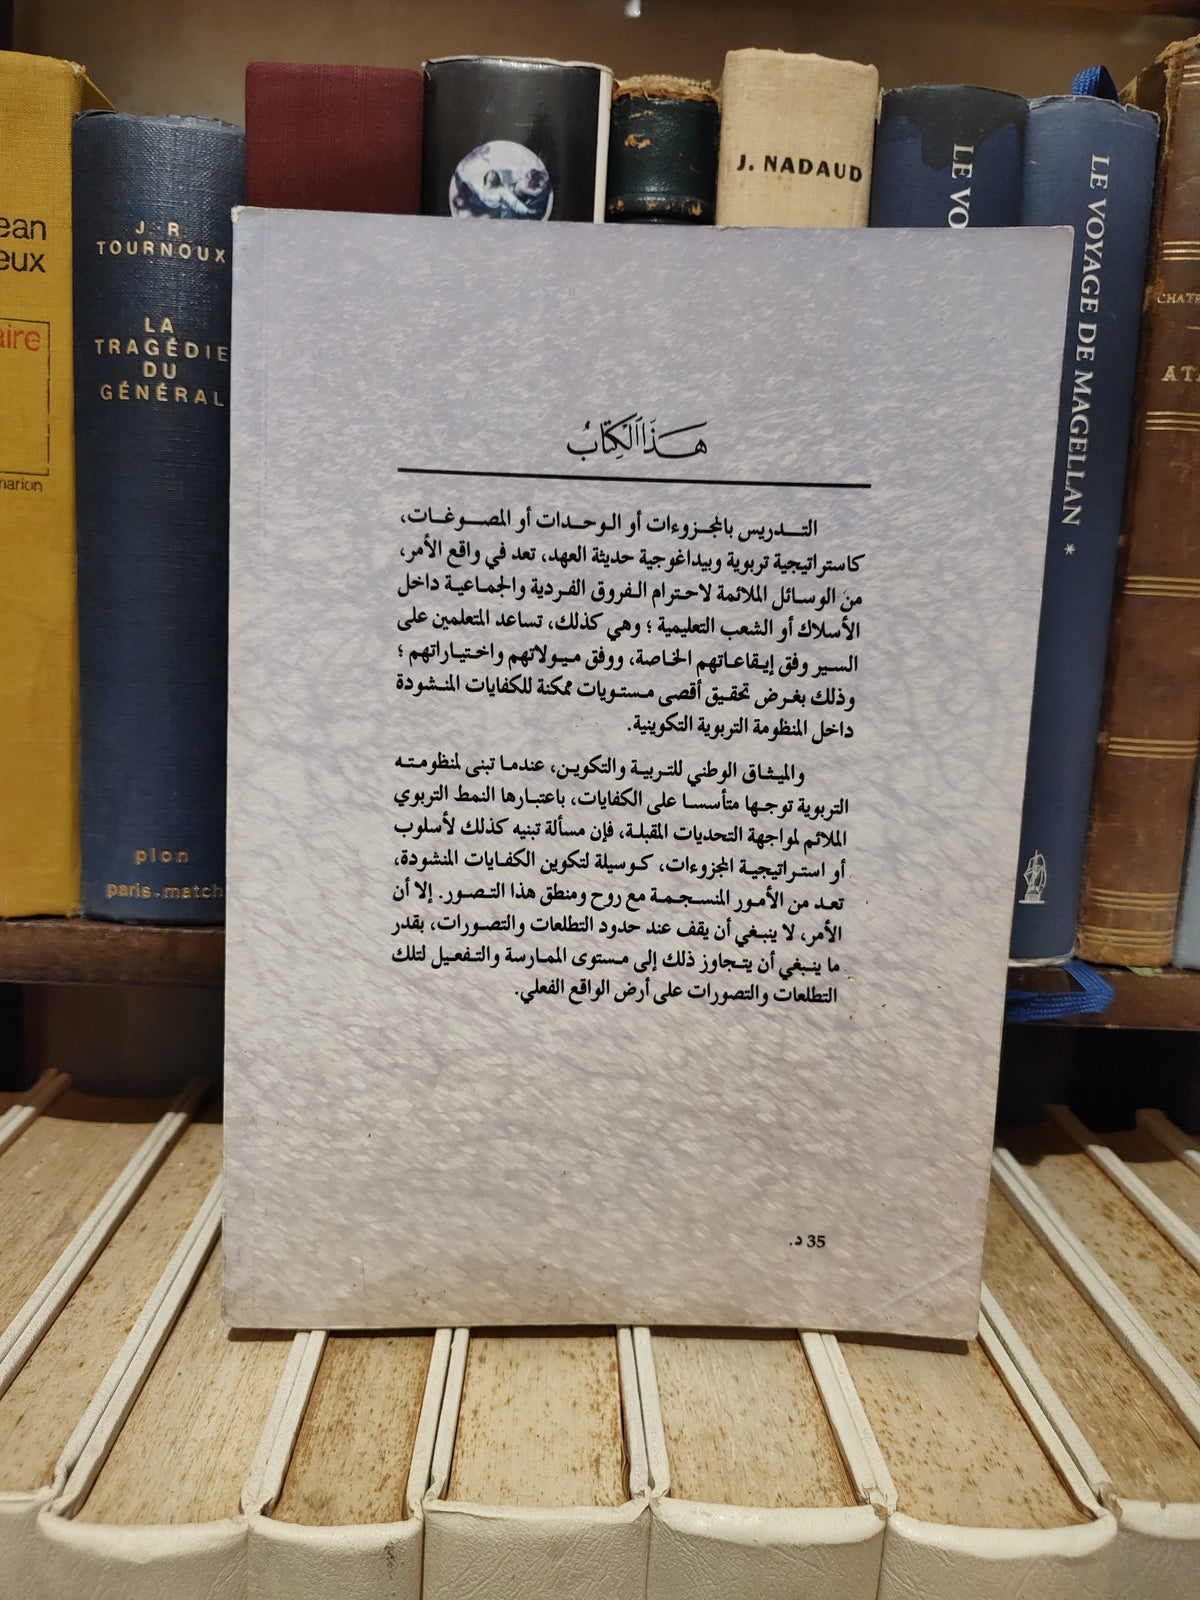 ean
eux
aire
marion
J.-R.
TOURNOUX
LA
TRAGÉDIE
DU
GÉNÉRAL
plon
paris-match
J. NADAUD
LE VO
LE VOYAGE DE MAGELLAN *
CHATE
ATA
هَذَا الْكِتَابُ
التدريس بالمجزوءات أو الوحدات أو المصوغات،
كاستراتيجية تربوية وبيداغوجية حديثة العهد، تعد في واقع الأمر،
من الوسائل الملائمة لاحترام الفروق الفردية والجماعية داخل
الأسلاك أو الشعب التعليمية ؛ وهي كذلك، تساعد المتعلمين على
السير وفق إيقاعاتهم الخاصة، ووفق ميولاتهم واختياراتهم ؛
وذلك بغرض تحقيق أقصى مستويات ممكنة للكفايات المنشودة
داخل المنظومة التربوية التكوينية.
والميثاق الوطني للتربية والتكوين، عندما تبنى لمنظومته
التربوية توجها متأسسا على الكفايات، باعتبارها النمط التربوي
الملائم لمواجهة التحديات المقبلة، فإن مسألة تبنيه كذلك لأسلوب
أو استراتيجية المجزوءات، كوسيلة لتكوين الكفايات المنشودة،
تعد من الأمور المنسجمة مع روح ومنطق هذا التصور. إلا أن
الأمر، لا ينبغي أن يقف عند حدود التطلعات والتصورات، بقدر
ما ينبغي أن يتجاوز ذلك إلى مستوى الممارسة والتفعيل لتلك
التطلعات والتصورات على أرض الواقع الفعلي.
35 د.